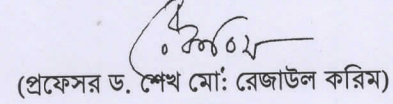 (প্রফেসর ড. শেখ মো: রেজাউল করিম)